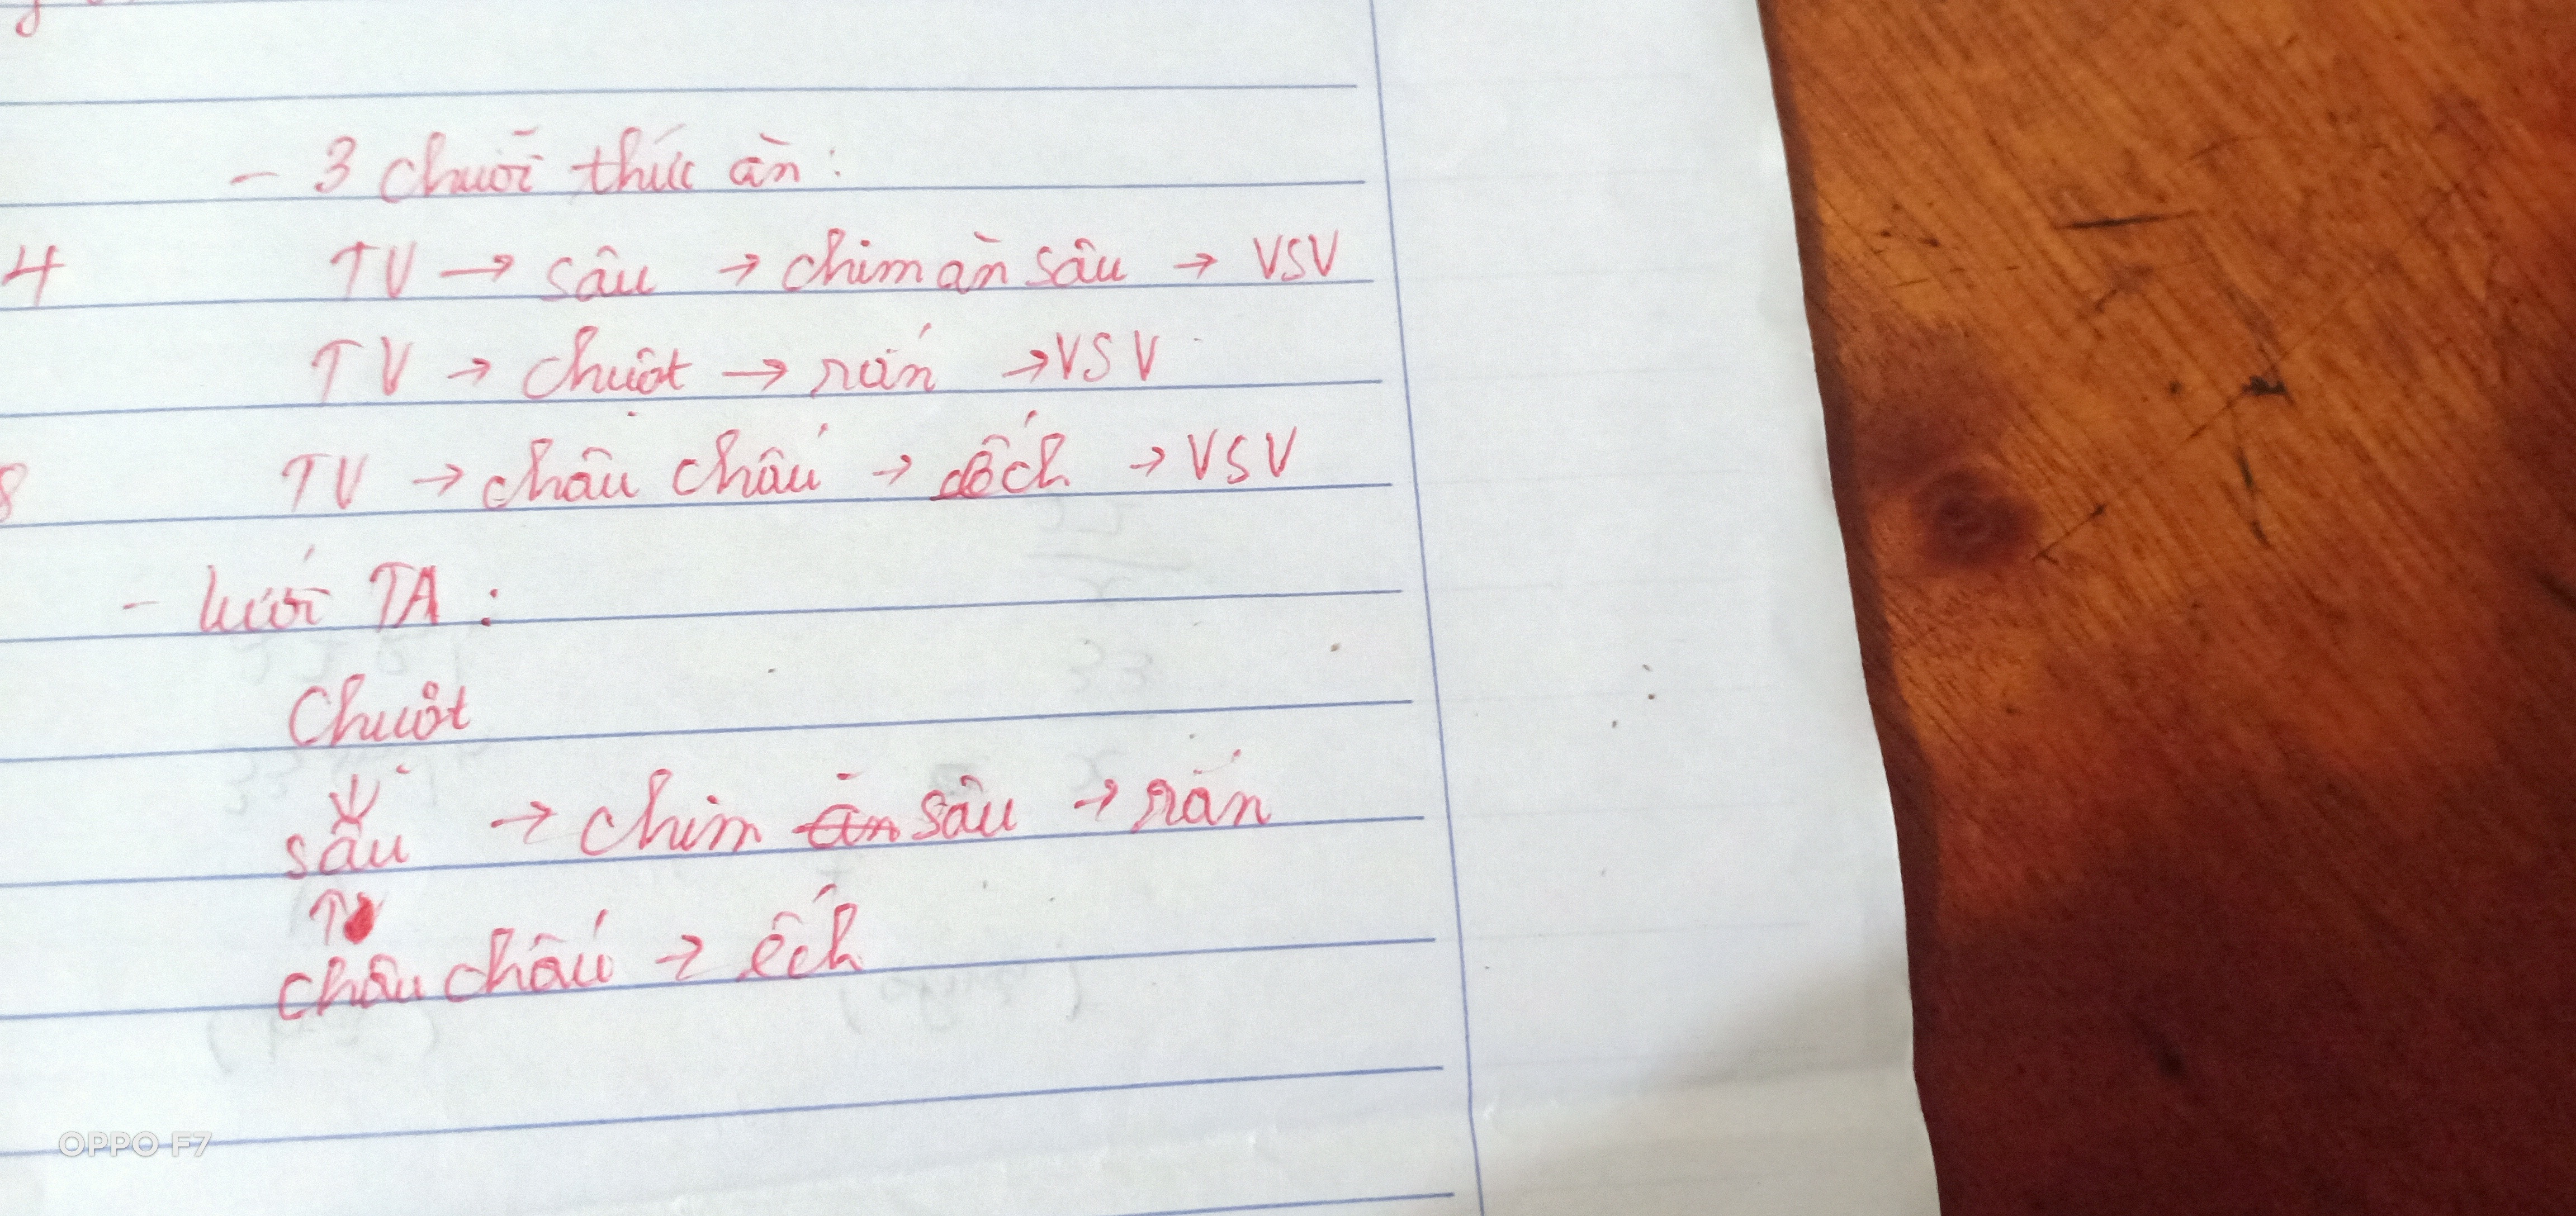 - 3 chuỗi thức ăn:
4 TV → sâu → chim ăn sâu → VSV
TV → chuột → rắn → VSV
8 TV → châu chấu → ếch → VSV
- lưới TA :
Chuột
sâu → chim sâu → rắn
châu chấu → ếch
OPPO F7